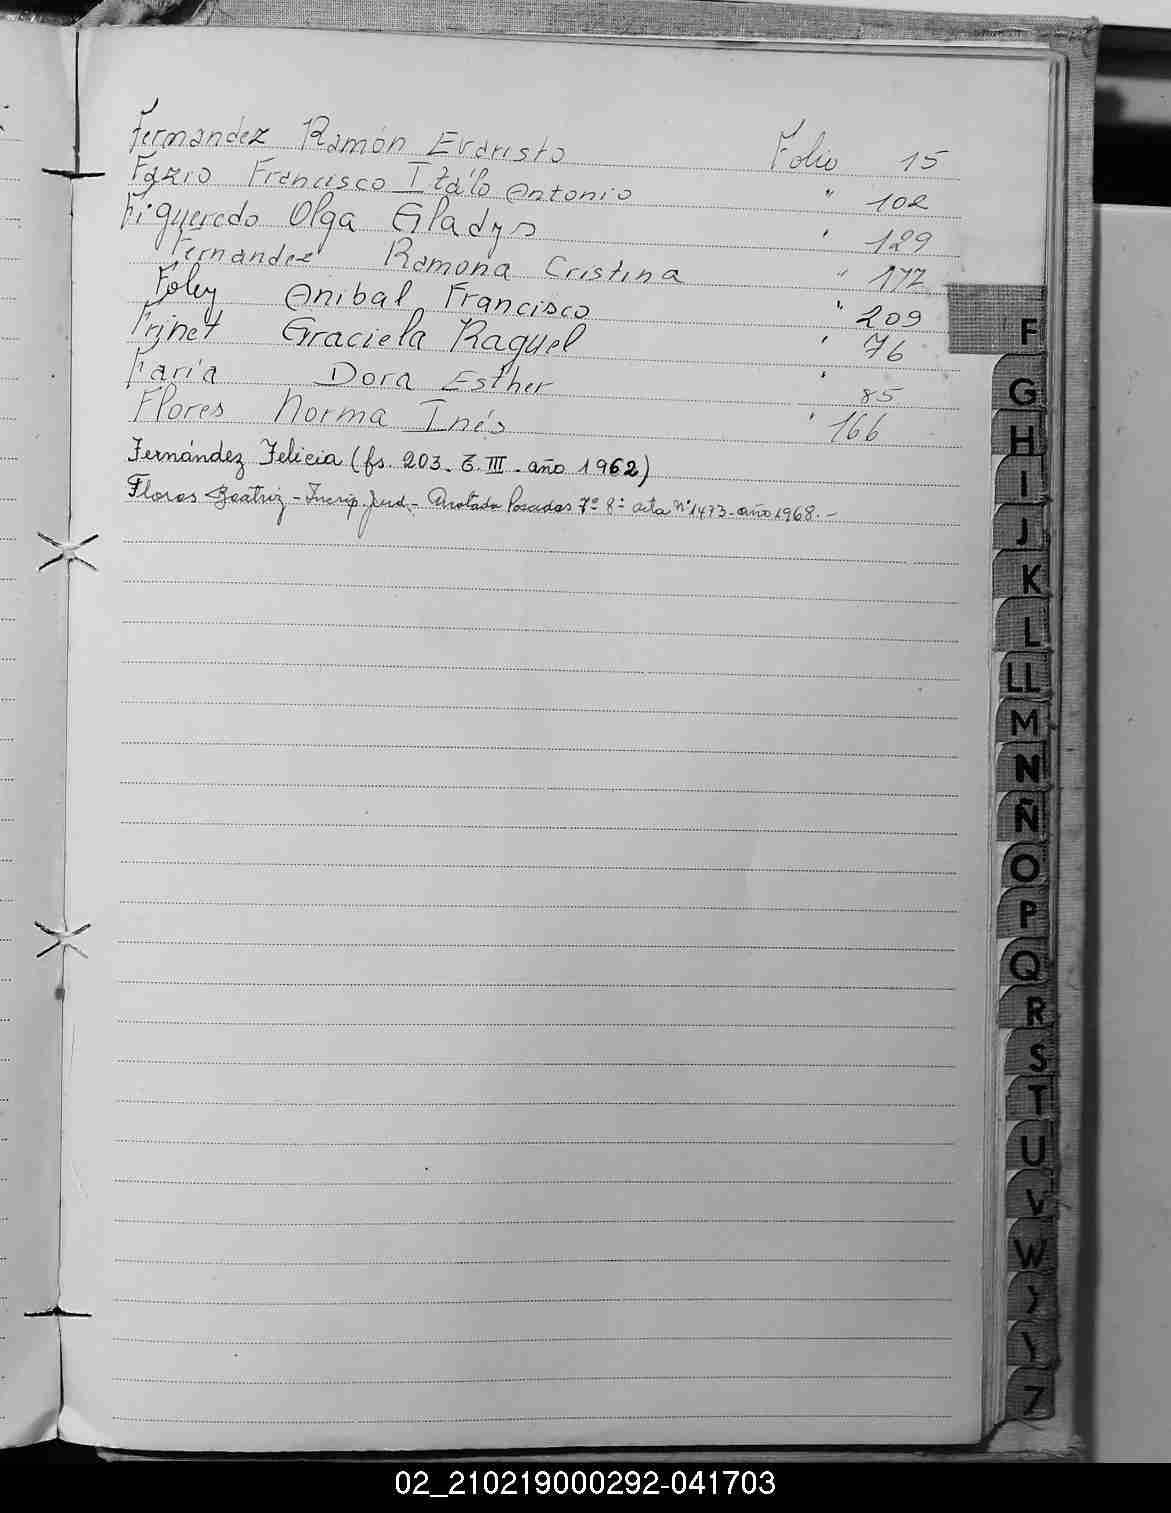 Fernandez Ramón Evaristo Folio 15
Fazio Francisco Itálo Antonio " 102
Figueredo Olga Gladys " 129
Fernandez Ramona Cristina " 177
Foley Anibal Francisco " 209
Frjnet Graciela Raquel " 76
Faria Dora Esther " 85
Flores Norma Inés " 166
Fernández Felicia (fs. 203. T. III. año 1962)
Flores Beatriz - Inscrip. Jud. - Anotada Posadas Tº 8º acta Nº 1473 - año 1968. -
F
G
H
I
J
K
L
LL
M
N
Ñ
O
P
Q
R
S
T
U
V
W
Y
Z
02_210219000292-041703